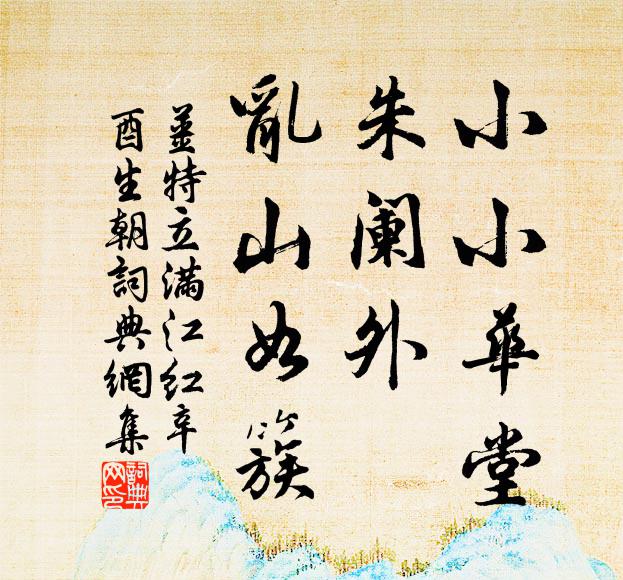 小小華堂
朱阑外
亂山如簇
姜特立满江红辛
酉生朝詞典網集
詞典
网印